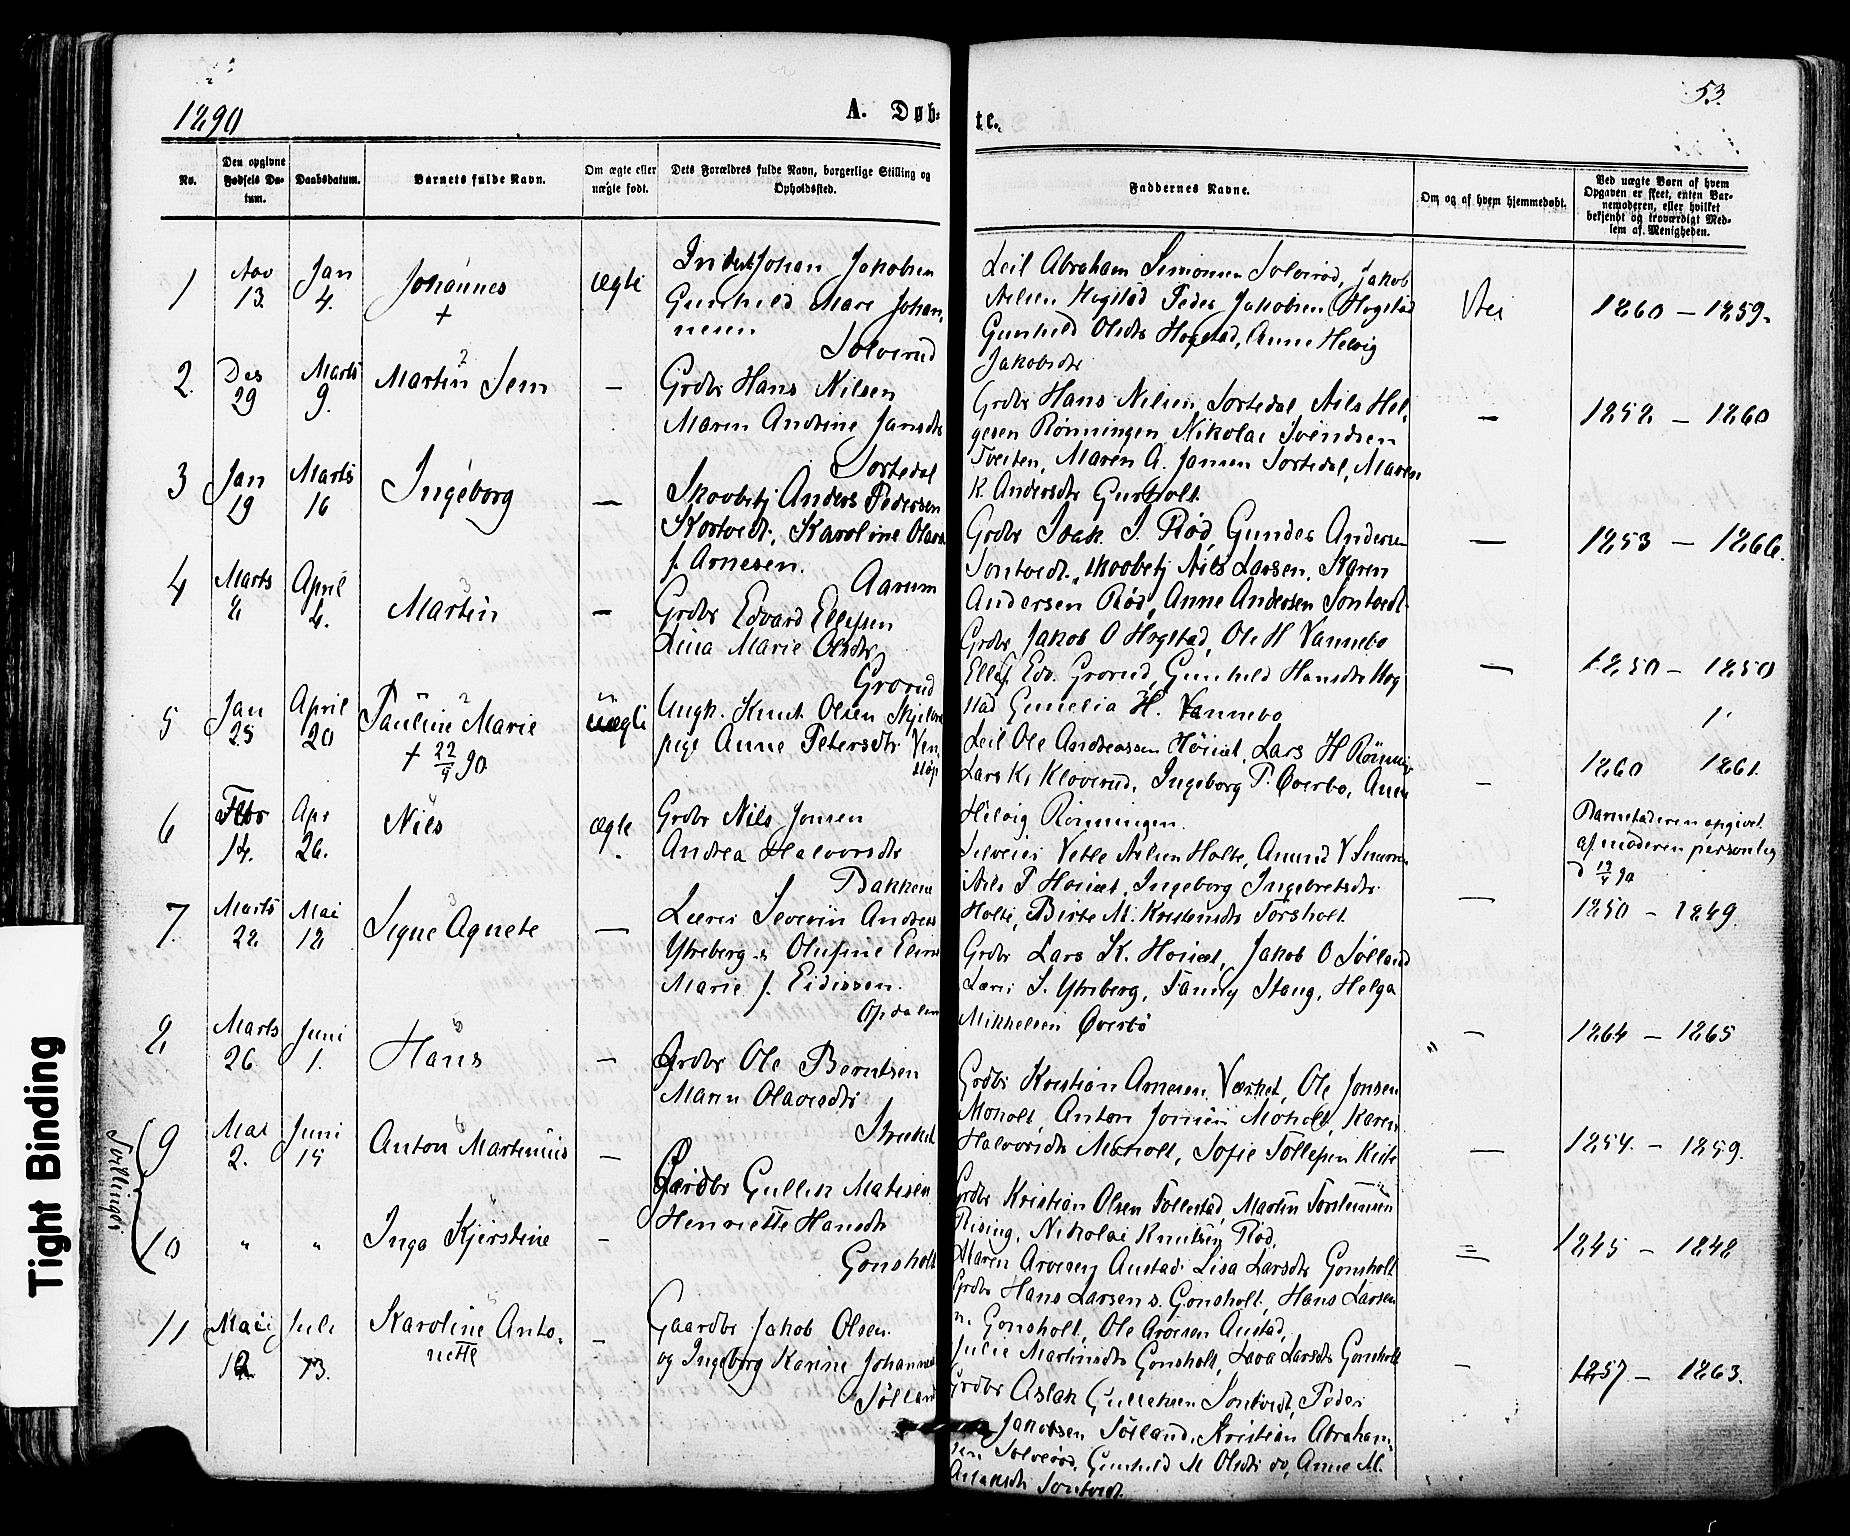 1890
A. Døb-
te.
53.
No.
Den opgivne Fødsels Da-
tum.
Daabsdatum.
Barnets fulde Navn.
Om ægte eller
uægte født.
Dets Forældres fulde Navn, borgerlige Stilling og
Opholdssted.
Faddernes Navne.
Om og af hvem hjemmedøbt.
Ved uægte Børn af hvem
Opgaven er skeet, enten Bar-
nemoderen, eller hvilket
bekjendt og troværdigt Med-
lem af Menigheden.
1
Nov
13.
Jan
4.
Johannes
+
Ægte
Johan Jakobsen
Gunhild Mare Johan
nesen
Solverud
Leil Abraham Simonsen Solverød, Jakob
Nilsen Hogstad Peder Jakobsen Hogstad
Gunhild Olsdtr Hogstad, Anne Helvig
Jakobsdtr
Nei
1860 – 1859.
2.
Des
29
Marts
9.
Martin Sem
–
Grdbr Hans Nilsen
Maren Andrine Jansdtr
Sortedal
Grdbr Hans Nilsen Sortedal, Nils Hel-
gesen Rønningen, Nikolai Svendsen
Tveiten, Maren A. Jansen Sortedal, Maren
K. Andersdtr Gurholt.
–
1852 – 1860
3
Jan
19
Marts
16
Ingeborg
–
Skovbetj Anders Pedersen
Kortvedt, Karoline
f. Arnesen.
Aarum
Grdbr Isak I. Rød, Gunder Andersen
Sontvedt, skovbetj Nils Larsen, Karen
Andersen Rød, Anne Andersen Sontvedt
–
1853 – 1866.
4
Marts
2
April
4.
Martin
–
Grdbr Edvard Ellefsen
Lina Marie Olsdtr
Grorud
Grdbr Jakob O Hogstad, Ole H Vannebo
Ellef Edv. Grorud, Gunhild Hansdtr Hog
stad Gunelia H. Vannebo
–
1850 – 1850
5
Jan
25
April
20
Pauline Marie
+ 22/9 90
uægte
Ungk. Knut Olsen
pige Anne Petersdtr Ven
støp
Leil Ole Andreassen Høiset, Lars H Rønning
Lars K. Kloverud, Ingeborg P. Øverbø, Anne
Helvig Rønningen.
–
1860 1861
Barnefaderen opgivet
af moderen personlig
6
Febr
14.
Apr
26.
Nils
Ægte
Grdbr Nils Jonsen
Andrea Halvorsdtr
Bakken
Selveier Vetle Nilsen Holte, Amund V
Nils P Hoiset, Ingeborg Ingebretsdtr
Holte, Birte M. Kristensdtr Torsholt
–
1850 – 1849.
7.
Marts
22
Mai
12
Signe Agnete
–
Lærer Severin Andreas
Ytreberg & Olufine Eline
Marie f. Eidissen.
Opdalen
Grdbr Lars K. Hoiset, Jakob O Sølland
Lærer S. Ytreberg, Fanny Stang, Helga
Mikkelsen Øverbø
–
1864 – 1865
8
Marts
26
Juni
1.
Hans
–
Grdbr Ole Berntsen
Maren Olavesdtr
Grdbr Kristian Arnesen Værket, Ole Jonsen
Moholt, Anton Jonsen Moholt, Karen
Halvorsdtr Moholt, Sofie Tollefsen
–
1854. – 1859.
Tvillinger
9
Mai
2.
Juni
15
Anton Martinius
–
Gaardbr Gullek Matisen
Henriette Hansdtr
Gonsholt
Grdbr Kristian Olsen Follestad, Martin
Rising, Nikolai Knutsen Rød,
Maren Arvesen Austad, Lisa Larsdtr Gonsholt
=
1845 – 1848
10
"
"
Inga Kjerstine
–
Grdbr Hans Larsen s. Gonsholt, Hans Larsen
n. Gonsholt, Ole Arvesen Austad,
Julie Martinsdtr Gonsholt, Lava Larsdtr Gonsholt
11
Mai
12
Juli
13.
Karoline Anto-
nette
–
Gaardbr Jakob Olsen
og Ingeborg Karine Johannes
Sølland
Grdbr Aslak Gulleksen Sontvedt, Peder
Jakobsen Sølland, Kristian Abraham-
sen Solverød, Gunhild M Olsdtr do, Anne M.
Aslaksdtr Sontvedt.
–
1857 – 1863.
Tight Binding